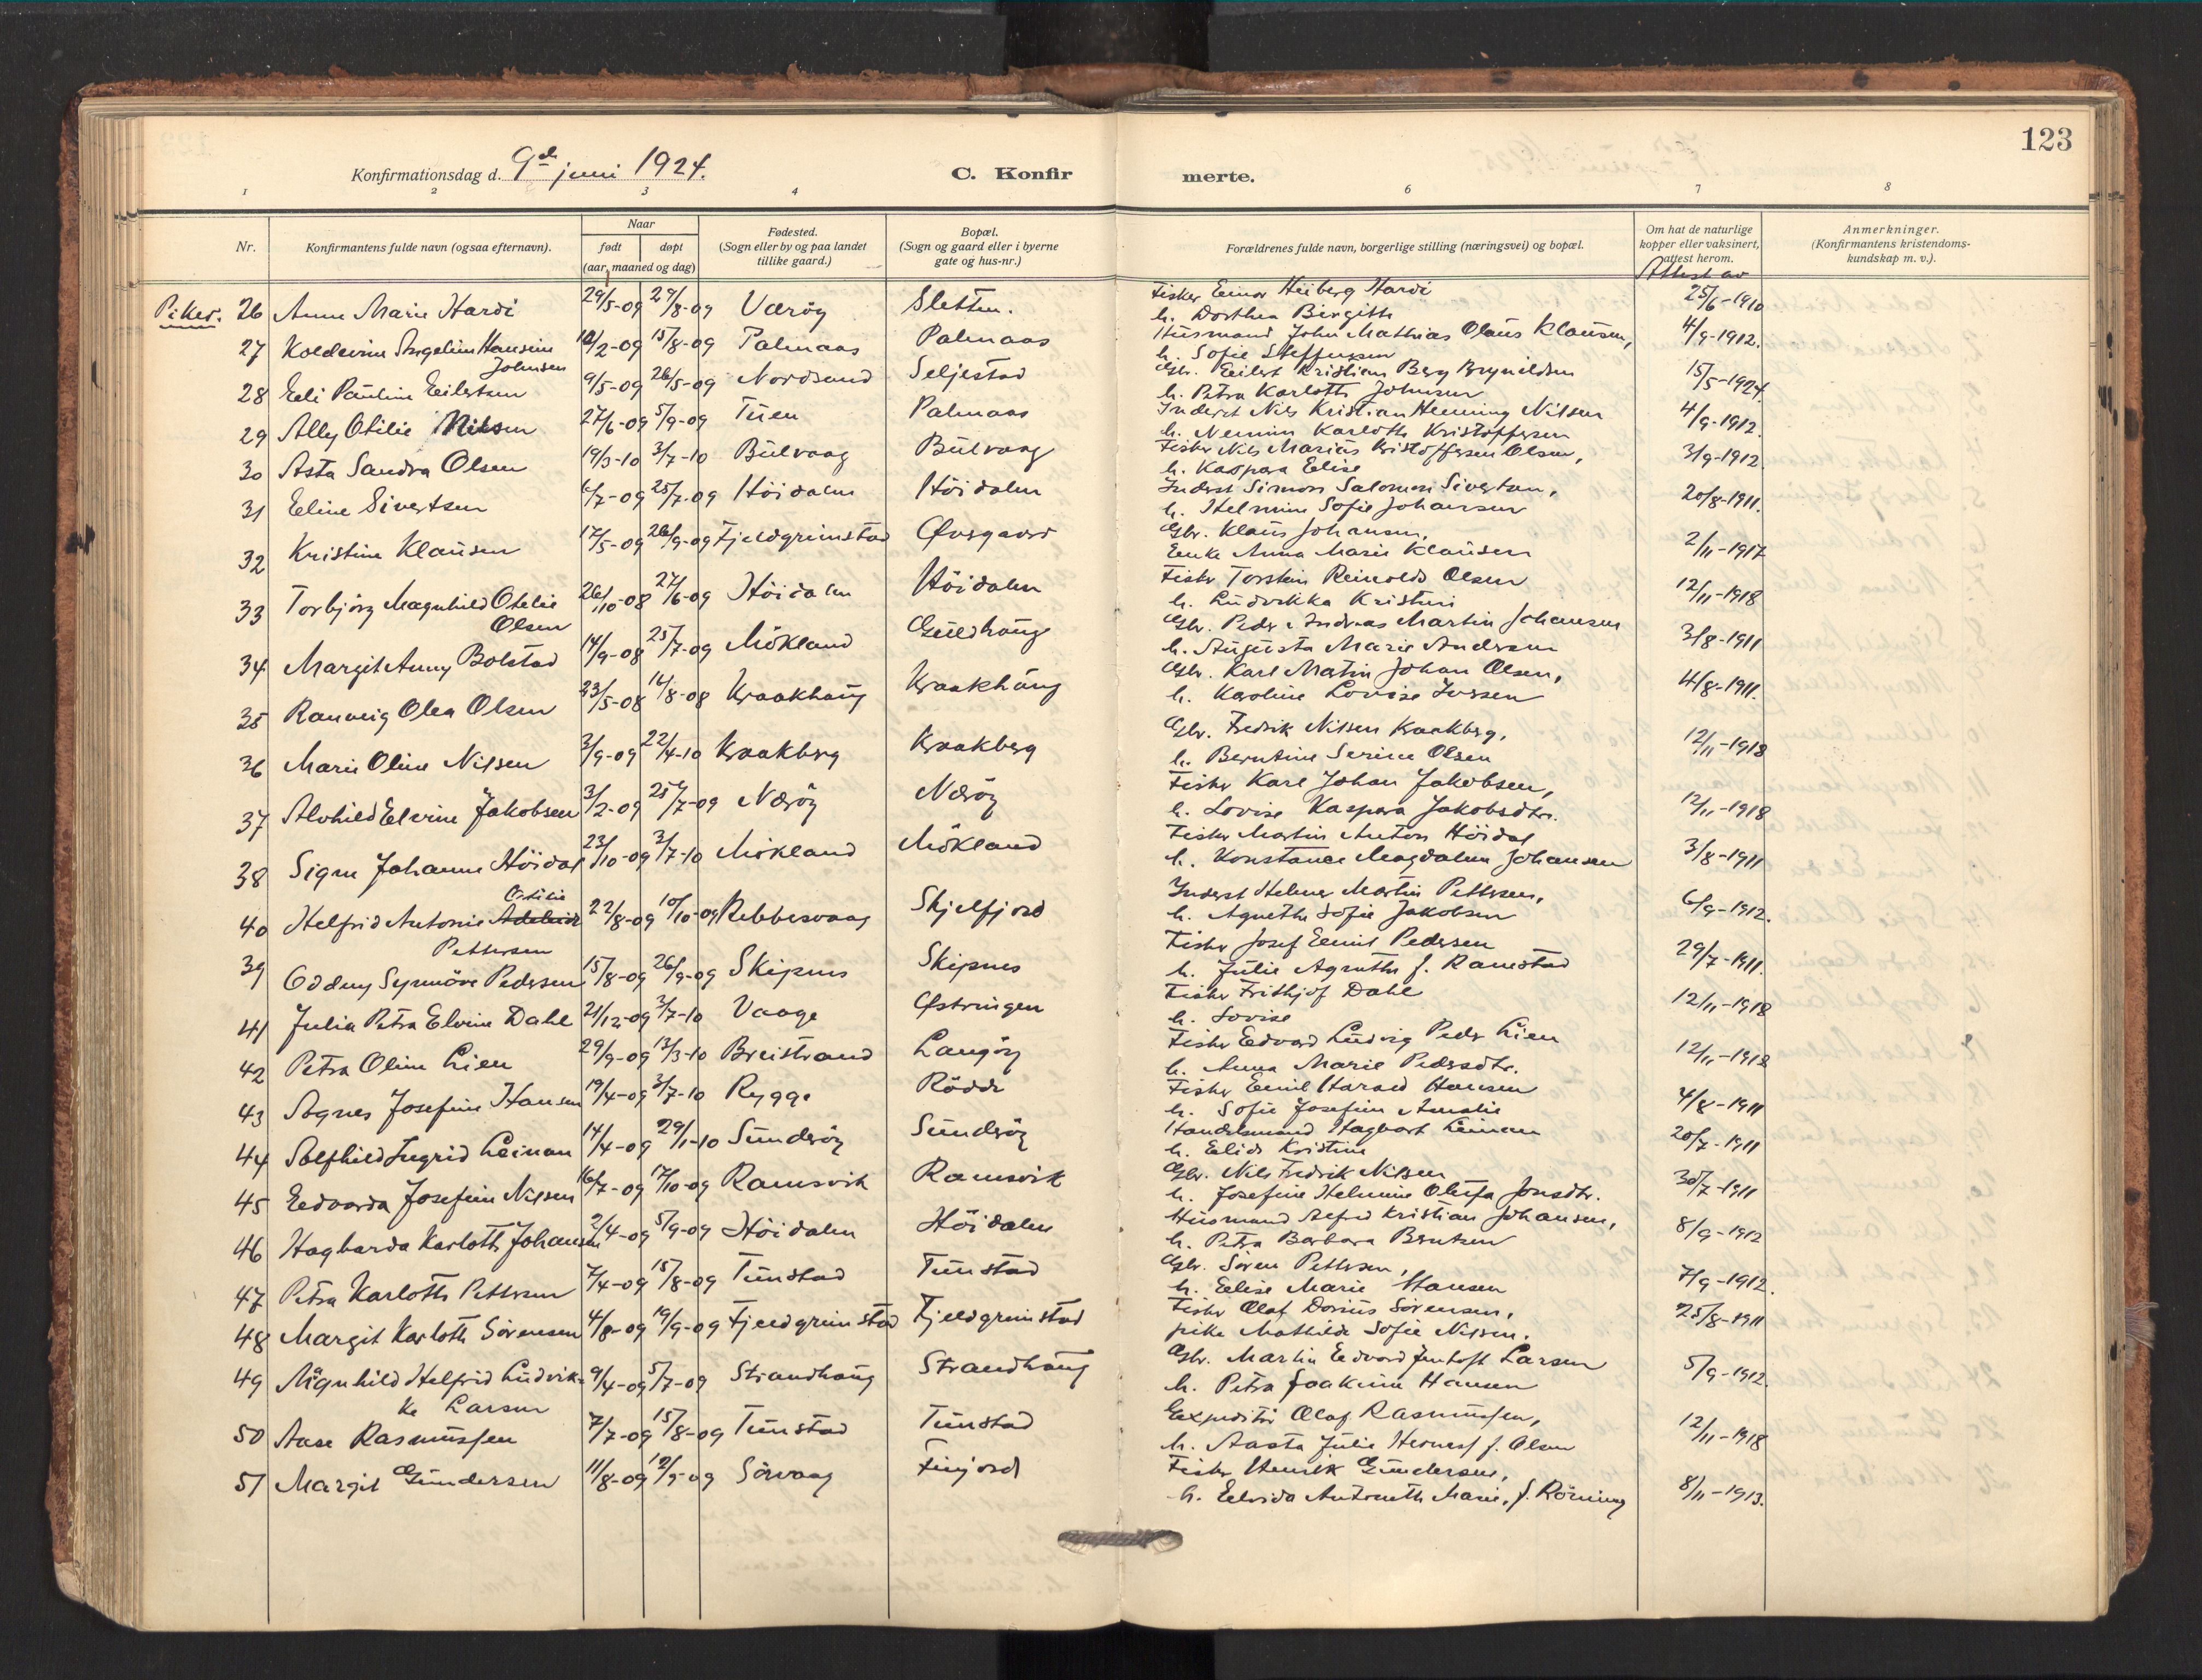 123
Konfirmationsdag d. 9de juni 1924.
C. Konfir
merte.
1 2 3 4 6 7 8
Nr.
Konfirmantens fulde navn (ogsaa efternavn).
Naar
født døpt
(aar, maaned og dag)
Fødested.
(Sogn eller by og paa landet
tillike gaard.)
Bopæl.
(Sogn og gaard eller i byerne
gate og hus-nr.)
Forældrenes fulde navn, borgerlige stilling (næringsvei) og bopæl.
Om hat de naturlige
kopper eller vaksinert,
attest herom.
Attest av
Anmerkninger.
(Konfirmantens kristendoms-
kundskap m. v.).
Piker. 26 Anna Marie Hardi 29/5-09 29/8-09 Værøy Sletten. Fisker Einar Heiberg Hardi 25/6-1910
h. Dorthea Birgitte
27 Koldevine Angeline Hansine 12/2-09 15/8-09 Palmaas Palmaas Husmand John Mathias Olaus Klausen, 4/9-1912.
Johnsen h. Sofie Steffensen
28 Eli Pauline Eilertsen 9/5-09 26/5-09 Nordsand Seljestad Gbr. Eilert Kristian Berg Brynildsen 15/5-1924
h. Petra Karlotte Johnsen
29 Ally Otilie Nilsen 27/6-09 5/9-09 Tuen Palmaas Inderst Nils Kristian Henning Nilsen 4/9-1912.
h. Karlotte Kristoffersen
30 Asta Sandra Olsen 19/3-10 3/7-10 Bulvaag Bulvaag Fisker Nils Marius Kristoffersen Olsen, 3/9-1912
h. Kaspara Elise
31 Eline Sivertsen 6/7-09 25/7-09 Höidalen Höidalen Inderst Simon Salomon Sivertsen, 20/8-1911.
h. Helmine Sofie Johansen
32 Kristine Klausen 17/5-09 26/9-09 Fjeldgrimstad Øvrgaard Gbr. Klaus Johansen, 2/11-1917
Enke Anna Marie Klausen
33 Torbjörg Magnhild Otelie 26/10-08 27/6-09 Höidalen Höidalen Fisker Torstein Reinholdt Olsen 12/11-1918
Olsen h. Ludvikka Kristine
34 Margit Anny Bolstad 14/9-08 25/7-09 Mökland Guldhaug Gbr. Peder Andreas Martin Johansen 3/8-1911
h. Augusta Marie Andersen
35 Ranveig Olea Olsen 23/5-08 16/8-08 Kraakhaug Kraakhaug Gbr. Karl Matin Johan Olsen, 4/8-1911.
h. Karoline Lovise Iversen
36 Marie Oline Nilsen 3/9-09 22/4-10 Kraakberg Kraakberg Gbr. Fredrik Nilsen Kraakberg, 12/11-1918
h. Berntine Serine Olsen
37 Alvhild Elvine Jakobsen 3/2-09 25/7-09 Nærøy Nærøy Fisker Karl Johan Jakobsen, 12/11-1918
h. Lovise Kaspara Jakobsdtr.
38 Signe Johanne Höidal 23/10-09 3/7-10 Mökland Mökland Fisker Martin Anton Höidal 3/8-1911
h. Konstance Magdalena Johansen
Otilie
40 Helfrid Antonie Adelaide 22/8-09 10/10-09 Rebbesvaag Skjelfjord Inderst Helmer Martin Pettersen, 6/9-1912.
Pettersen h. Agnethe Sofie Jakobsen
39 Oddny Synnöve Pedersen 15/8-09 26/9-09 Skipnes Skipnes Fisker Josef Emil Pedersen 29/7-1911.
h. Julie Agnethe f. Ramstad
41 Julia Petra Elvine Dahl 21/12-09 3/7-10 Vaage Østringen Fisker Frithjof Dahl 12/11-1918
h. Lovise
42 Petra Oline Lien 29/9-09 13/3-10 Breistrand Langøy Fisker Edvard Ludvig Peder Lien 12/11-1918
h. Anna Marie Pedersdtr.
43 Agnes Josefine Hansen 19/4-09 3/7-10 Rygge Rödde Fisker Emil Harald Hansen 4/8-1911
h. Sofie Josefine Amalie
44 Solfhild Ingrid Leinan 14/4-09 29/1-10 Sunderøy Sunderøy Handelsmand Hagbart Leinan 20/7-1911
h. Elide Kristine
45 Edvarda Josefine Nilsen 16/7-09 17/10-09 Ramsvik Ramsvik Gbr. Nils Fredrik Nilsen 30/7-1911
h. Josefine Helmine Olufa Jonsdtr.
46 Hagbarda Karlotte Johansen 2/4-09 5/9-09 Höidalen Höidalen Husmand Alfred Kristian Johansen, 8/9-1912
h. Petra Barbara Berntsen
47 Petra Karlotte Pettersen 7/4-09 15/8-09 Tunstad Tunstad Gbr. Sören Pettersen, 7/9-1912.
h. Elise Marie Hansen
48 Margit Karlotte Sörensen 4/8-09 19/9-09 Fjeldgrimstad Fjeldgrimstad Fisker Olaf Dorius Sörensen, 25/8-1911
pike Mathilde Sofie Nilsen.
49 Magnhild Helfrid Ludvik- 9/4-09 5/7-09 Strandhaug Strandhaug Gbr. Martin Edvard Jentoft Larsen 5/9-1912.
ke Larsen h. Petra Joakime Hansen
50 Aase Rasmussen 7/7-09 15/8-09 Tunstad Tunstad Expeditør Olaf Rasmussen, 12/11-1918
h. Aasta Julie Hernes f. Olsen
51 Margit Gundersen 11/8-09 12/9-09 Sörvaag Finjord Fisker Henrik Gundersen, 8/11-1913.
h. Elvida Antonette Marie, f. Röning